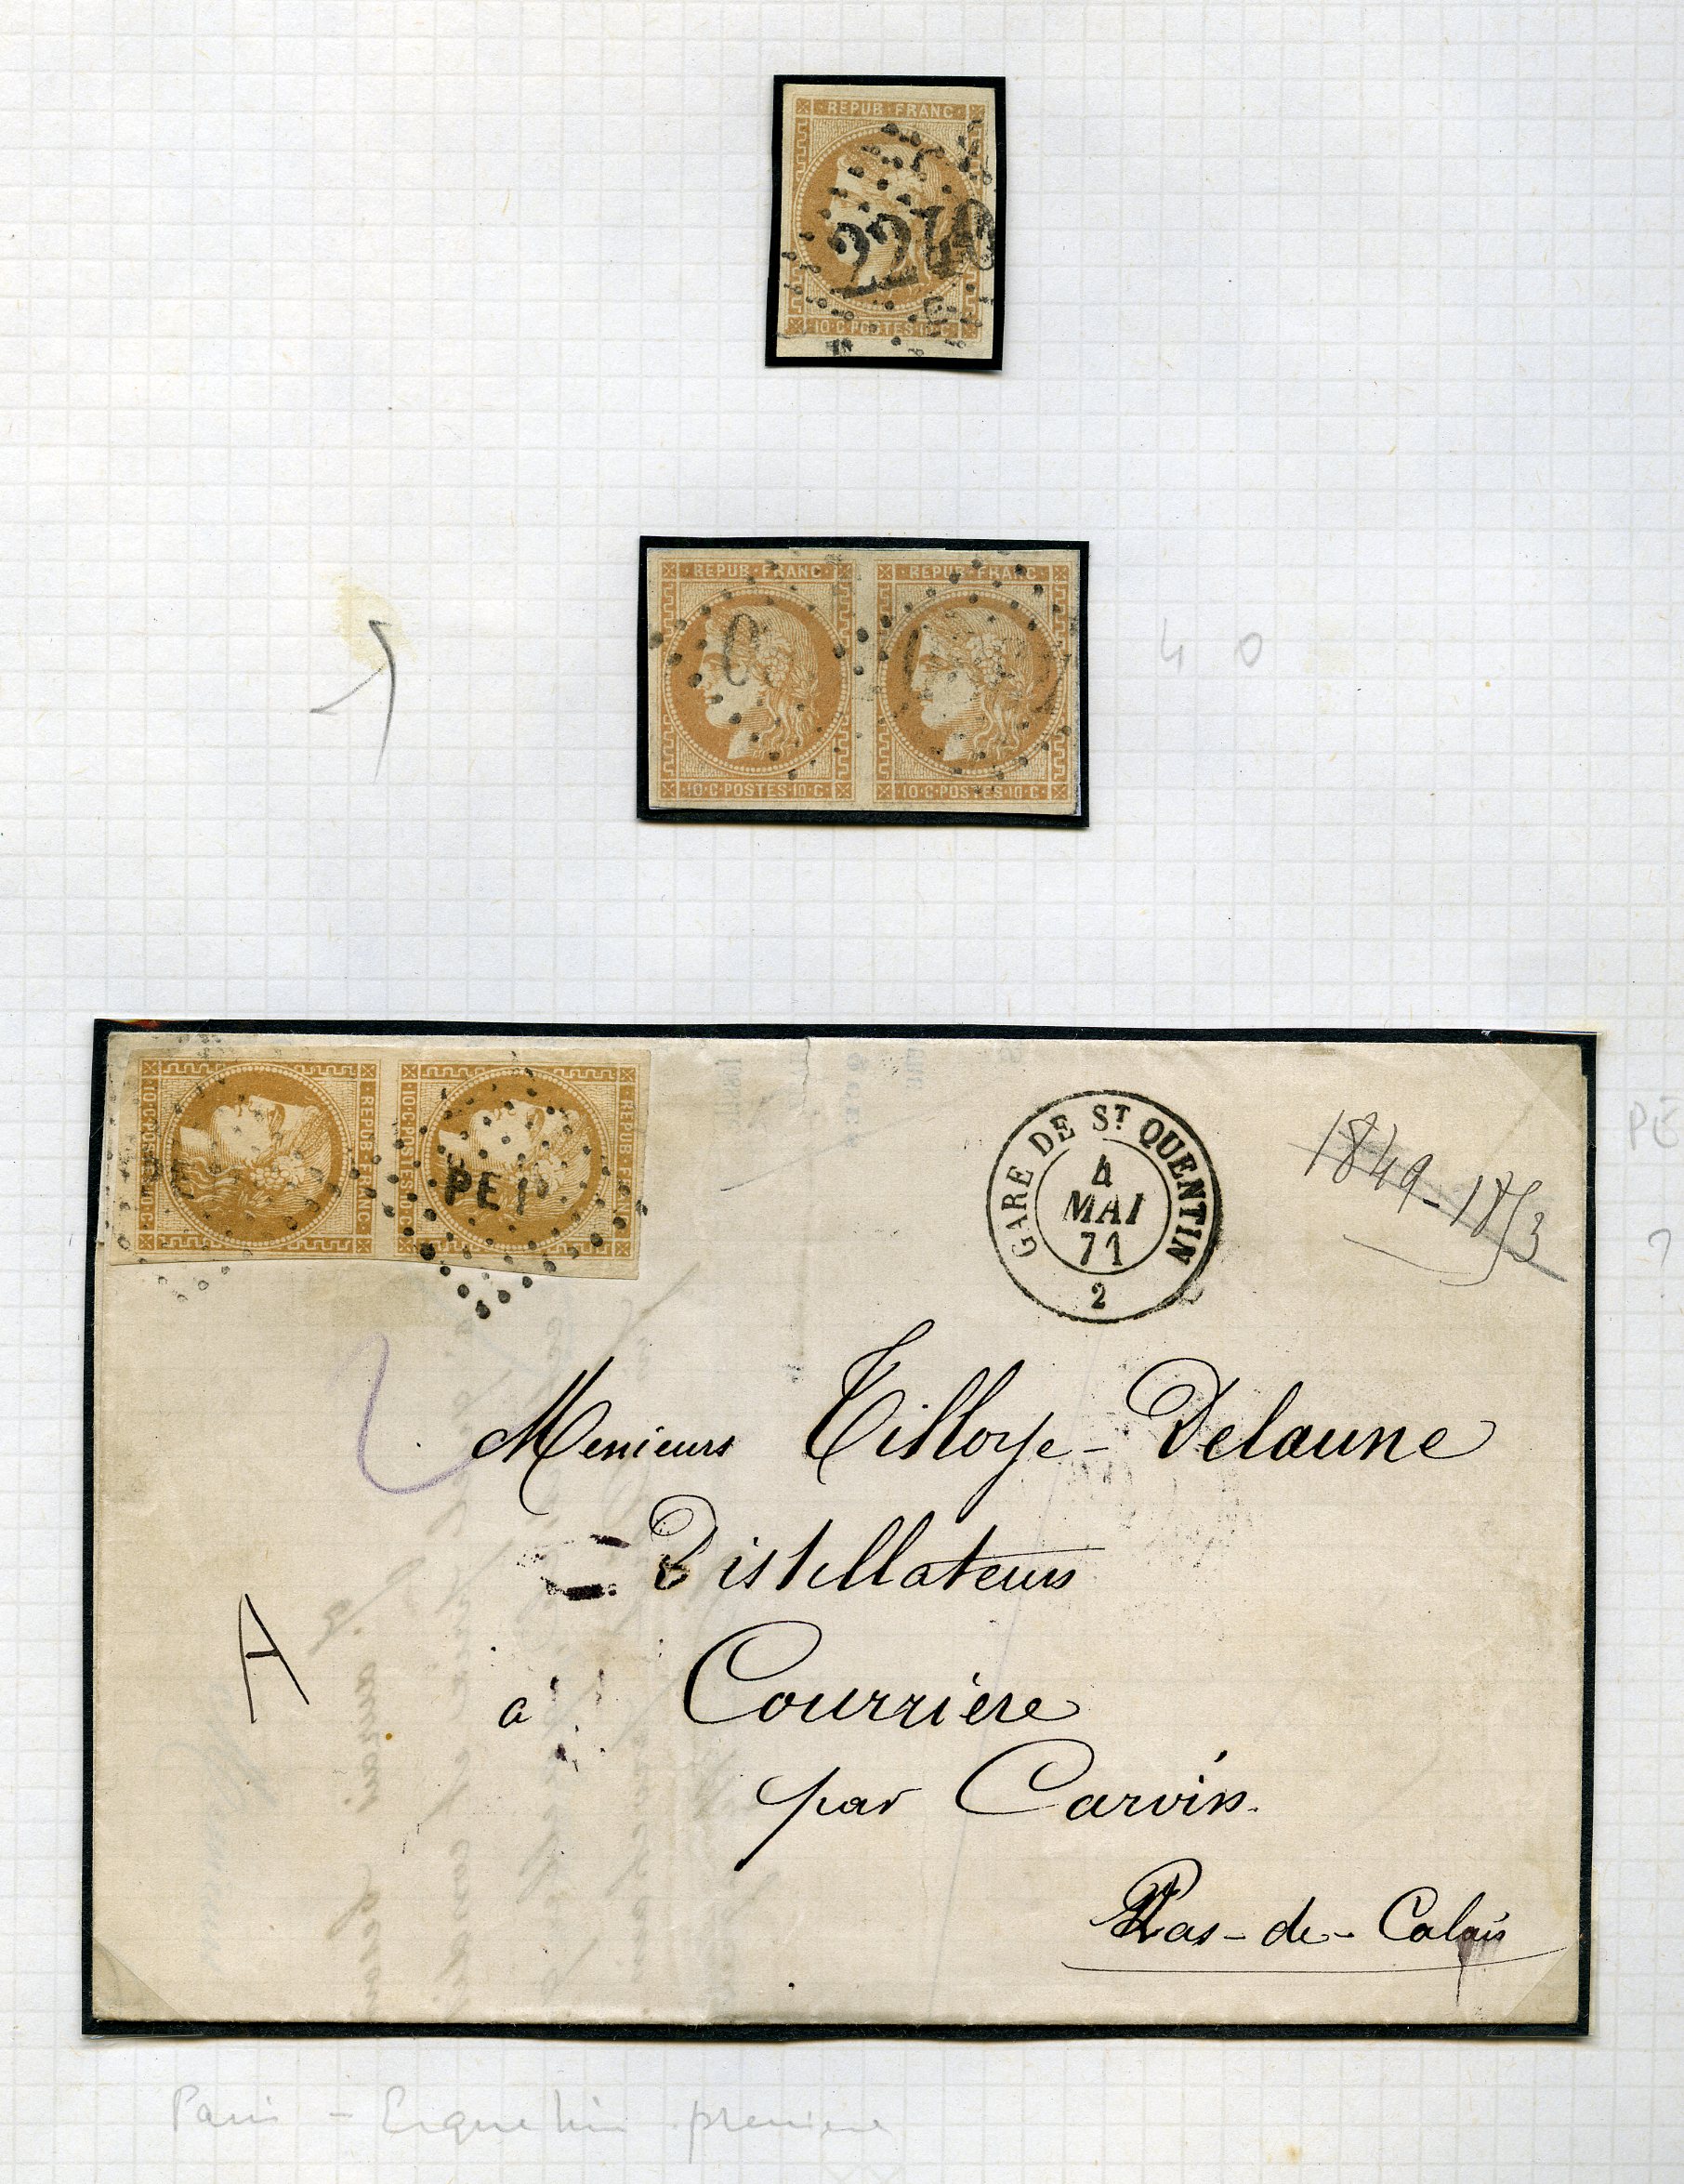 REPUB · FRANC ·
2240
10 · C · POSTES · 10 · C
· REPUB · FRANC ·
· REPUB · FRANC ·
4 0
· 10 · C · POSTES · 10 · C ·
· 10 · C · POSTES · 10 · C ·
REPUB · FRANC
REPUB · FRANC
10 · C · POSTES · 10 · C
10 · C · POSTES · 10 · C
PE1°
GARE DE ST QUENTIN
4
MAI
71
2
1849-1853
PE
?
2
Messieurs Tilloye-Delaune
Distillateurs
A
à Courriere
par Carvin.
Pas-de-Calais
Paris - Erquelin premiere